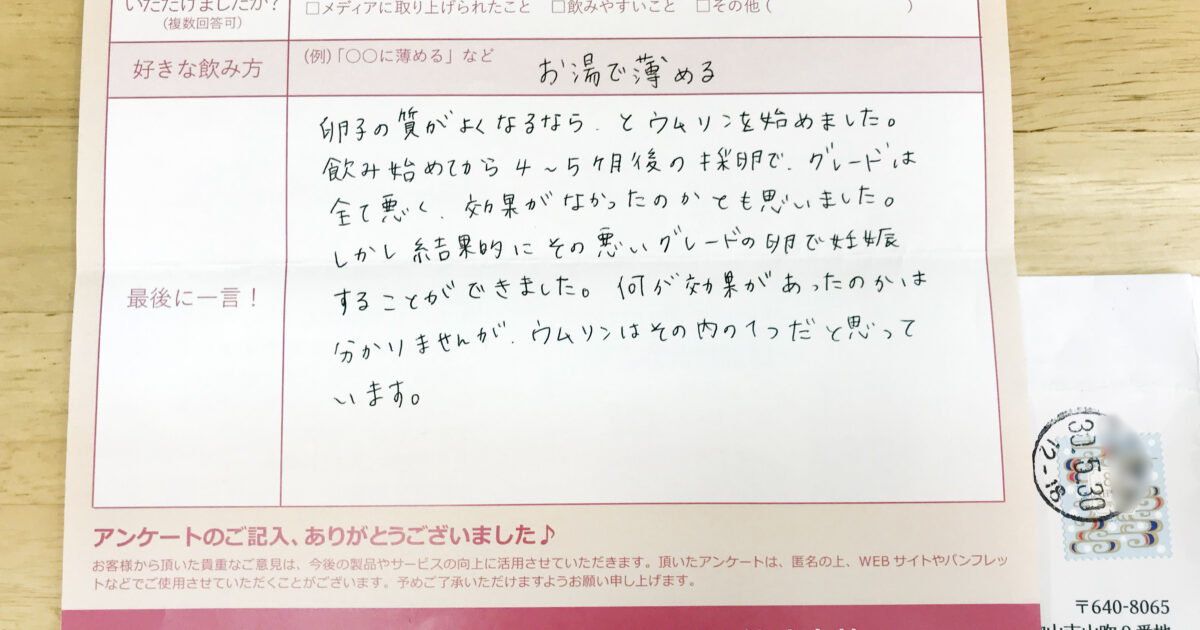 いただけましたか?
(複数回答可)
□メディアに取り上げられたこと □飲みやすいこと □その他( )
好きな飲み方
(例)「○○に薄める」など
お湯で薄める
最後に一言!
卵子の質がよくなるなら、とウムリンを始めました。
飲み始めてから4~5ケ月後の採卵で、グレードは
全て悪く、効果がなかったのかとも思いました。
しかし結果的にその悪いグレードの卵で妊娠
することができました。何が効果があったのかは
分かりませんが、ウムリンはその内の1つだと思って
います。
アンケートのご記入、ありがとうございました♪
お客様から頂いた貴重なご意見は、今後の製品やサービスの向上に活用させていただきます。頂いたアンケートは、匿名の上、WEBサイトやパンフレッ
トなどでご使用させていただくことがございます。予めご了承いただけますようお願い申し上げます。
30.5.30
12-18
〒640-8065